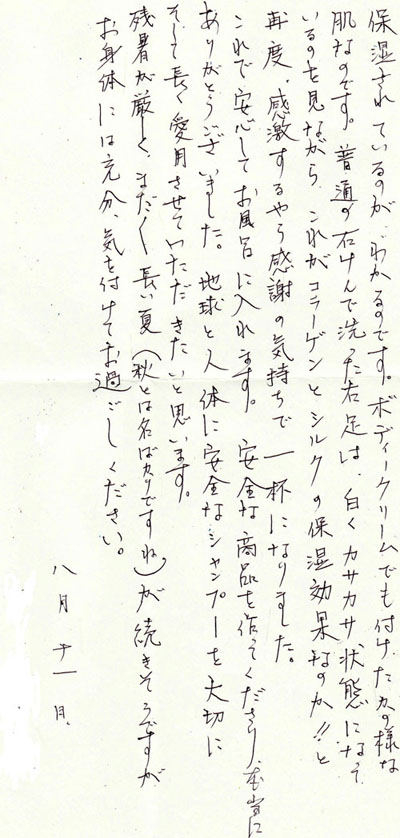 保湿されているのが、わかるのです。ボディークリームでも付けたかの様な
肌なのです。普通の石けんで洗った右足は、白くカサカサ状態になって
いるのを見ながら、これがコラーゲンとシルクの保湿効果なのか!!と
再度、感激するやら感謝の気持ちで一杯になりました。
これで安心してお風呂に入れます。安全な商品を作てくださり、本当に
ありがとうございました。地球と人体に安全なシャンプーを大切に
そして長く愛用させていただきたいと思います。
残暑が厳しく、まだまだ長い夏(秋とは名ばかりですね)が続きそうですが
お身体には充分、気を付けてお過ごしください。
八月十一日